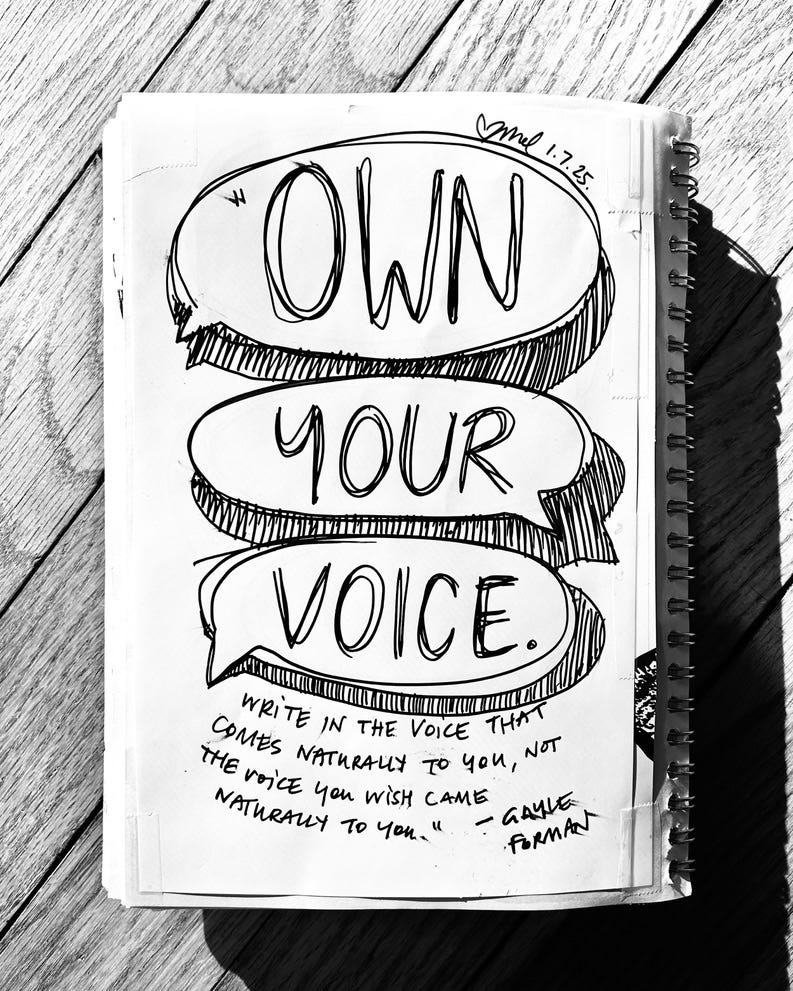 ♡mel 1.7.25.
OWN
YOUR
VOICE.
WRITE IN THE VOICE THAT
COMES NATURALLY TO YOU, NOT
THE VOICE YOU WISH CAME
NATURALLY TO YOU."
- GAYLE
FORMAN